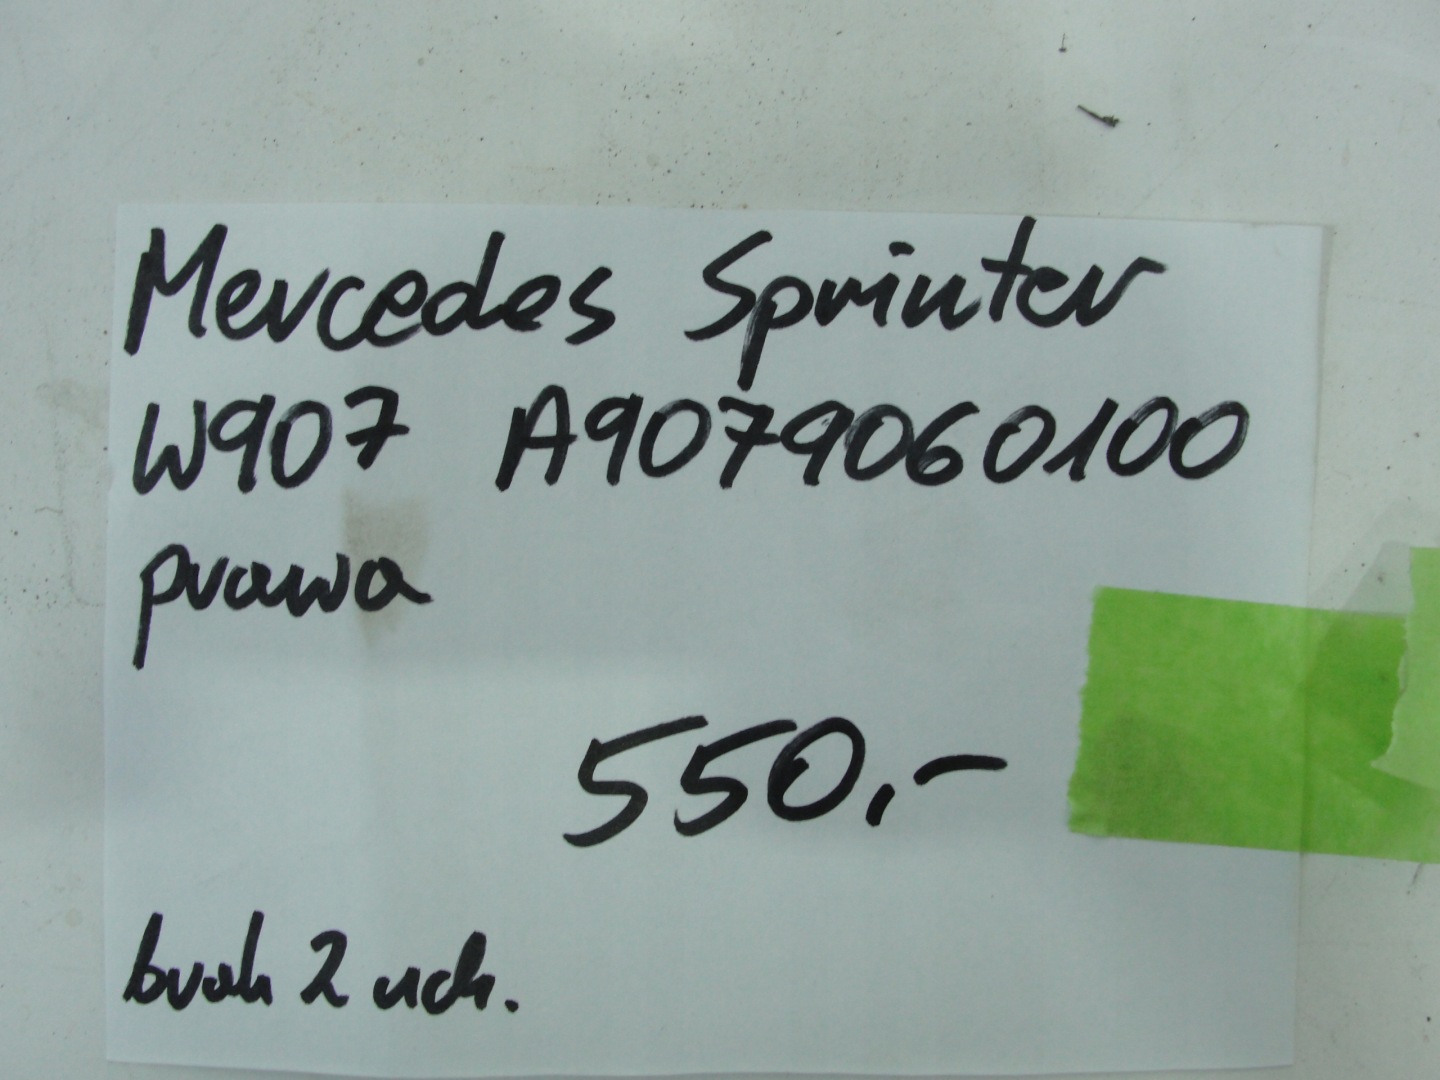 Mercedes Sprinter
W907 A9079060100
prawa
550,-
brak 2 uch.